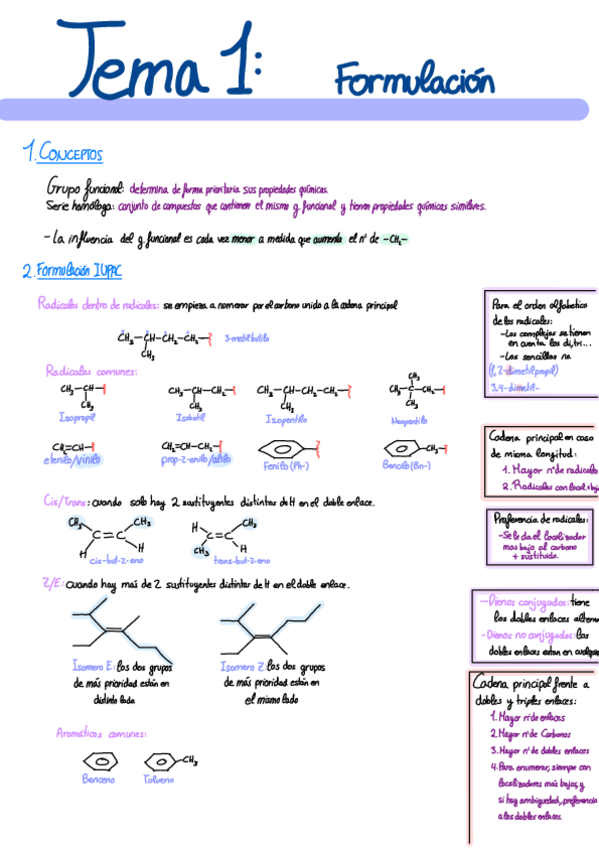 Tema 1: Formulación
1. CONCEPTOS
Grupo funcional: determina de forma prioritaria sus propiedades químicas.
Serie homóloga: conjunto de compuestos que contienen el mismo g. funcional y tienen propiedades químicas similares.
- La influencia del g. funcional es cada vez menor a medida que aumenta el nº de -CH₂-
2. Formulación IUPAC
Radicales dentro de radicales: se empieza a numerar por el carbono unido a la cadena principal
CH₃-CH-CH₂-CH₂-
CH₃
3-metilbutilo
Radicales comunes:
CH₃-CH-
CH₃
Isopropil
CH₃-CH-CH₂-
CH₃
Isobutil
CH₃-CH-CH₂-CH₂-
CH₃
Isopentilo
CH₃
CH₃-C-CH₂-
CH₃
Neopentilo
CH₂=CH-
etenilo/vinilo
CH₂=CH-CH₂-
prop-2-enilo/alilo
Fenilo (Ph-)
CH₂-
Bencilo (Bn-)
Cis/Trans: cuando solo hay 2 sustituyentes distintos de H en el doble enlace.
CH₃ CH₃
C=C
H H
cis-but-2-eno
H CH₃
C=C
CH₃ H
trans-but-2-eno
Z/E: cuando hay más de 2 sustituyentes distintos de H en el doble enlace.
Isomero E: los dos grupos
de más prioridad están en
distinto lado
Isomero Z: los dos grupos
de más prioridad están en
el mismo lado
Aromáticos comunes:
Benceno
CH₃
Tolueno
Para el orden alfabético
de los radicales:
- Los complejos se tienen
en cuenta los di, tri...
- Los sencillos no
(1,2-dimetilpropil)
3,4-dimetil-
Cadena principal en caso
de misma longitud:
1. Mayor nº de radicales
2. Radicales con local.
Preferencia de radicales:
- Se le da el localizador
mas bajo al carbono
+ sustituido.
- Dienos conjugados: tiene
los dobles enlaces
- Dienos no conjugados: los
dobles enlaces estan en
Cadena principal frente a
dobles y triples enlaces:
1. Mayor nº de enlaces
2. Mayor nº de Carbonos
3. Mayor nº de dobles enlaces
4. Para enumerar, siempre con
localizadores más bajos, y
si hay ambigüedad, preferencia
a los dobles enlaces.